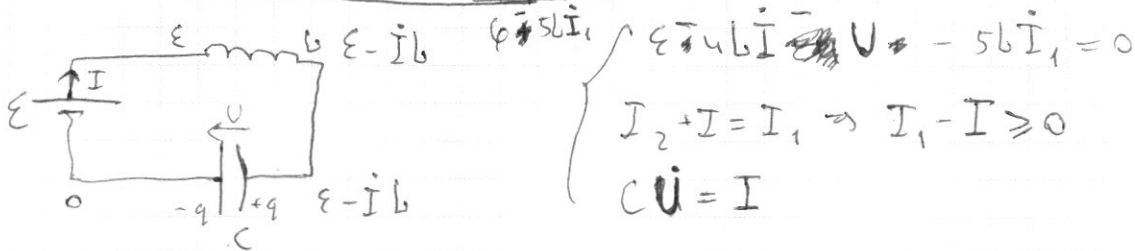 ε L ε - İL
φ - 5Lİ₁
ε I
U
0 -q +q ε - İL
C
ε - 4Lİ - U - 5Lİ₁ = 0
I₂ + I = I₁ → I₁ - I ⩾ 0
CU̇ = I